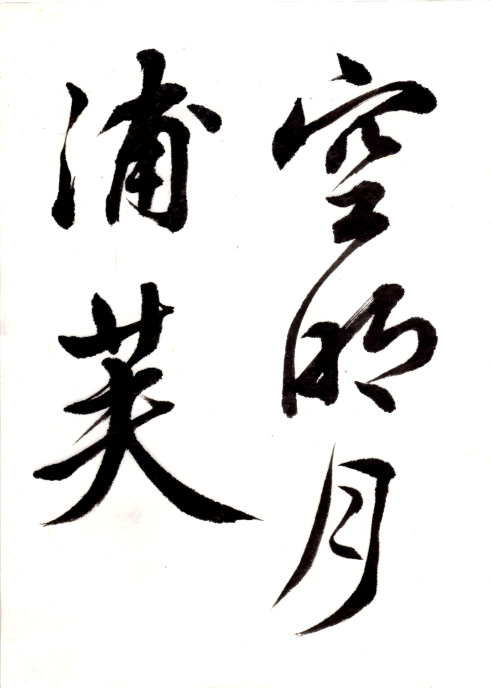 空明月
浦芙